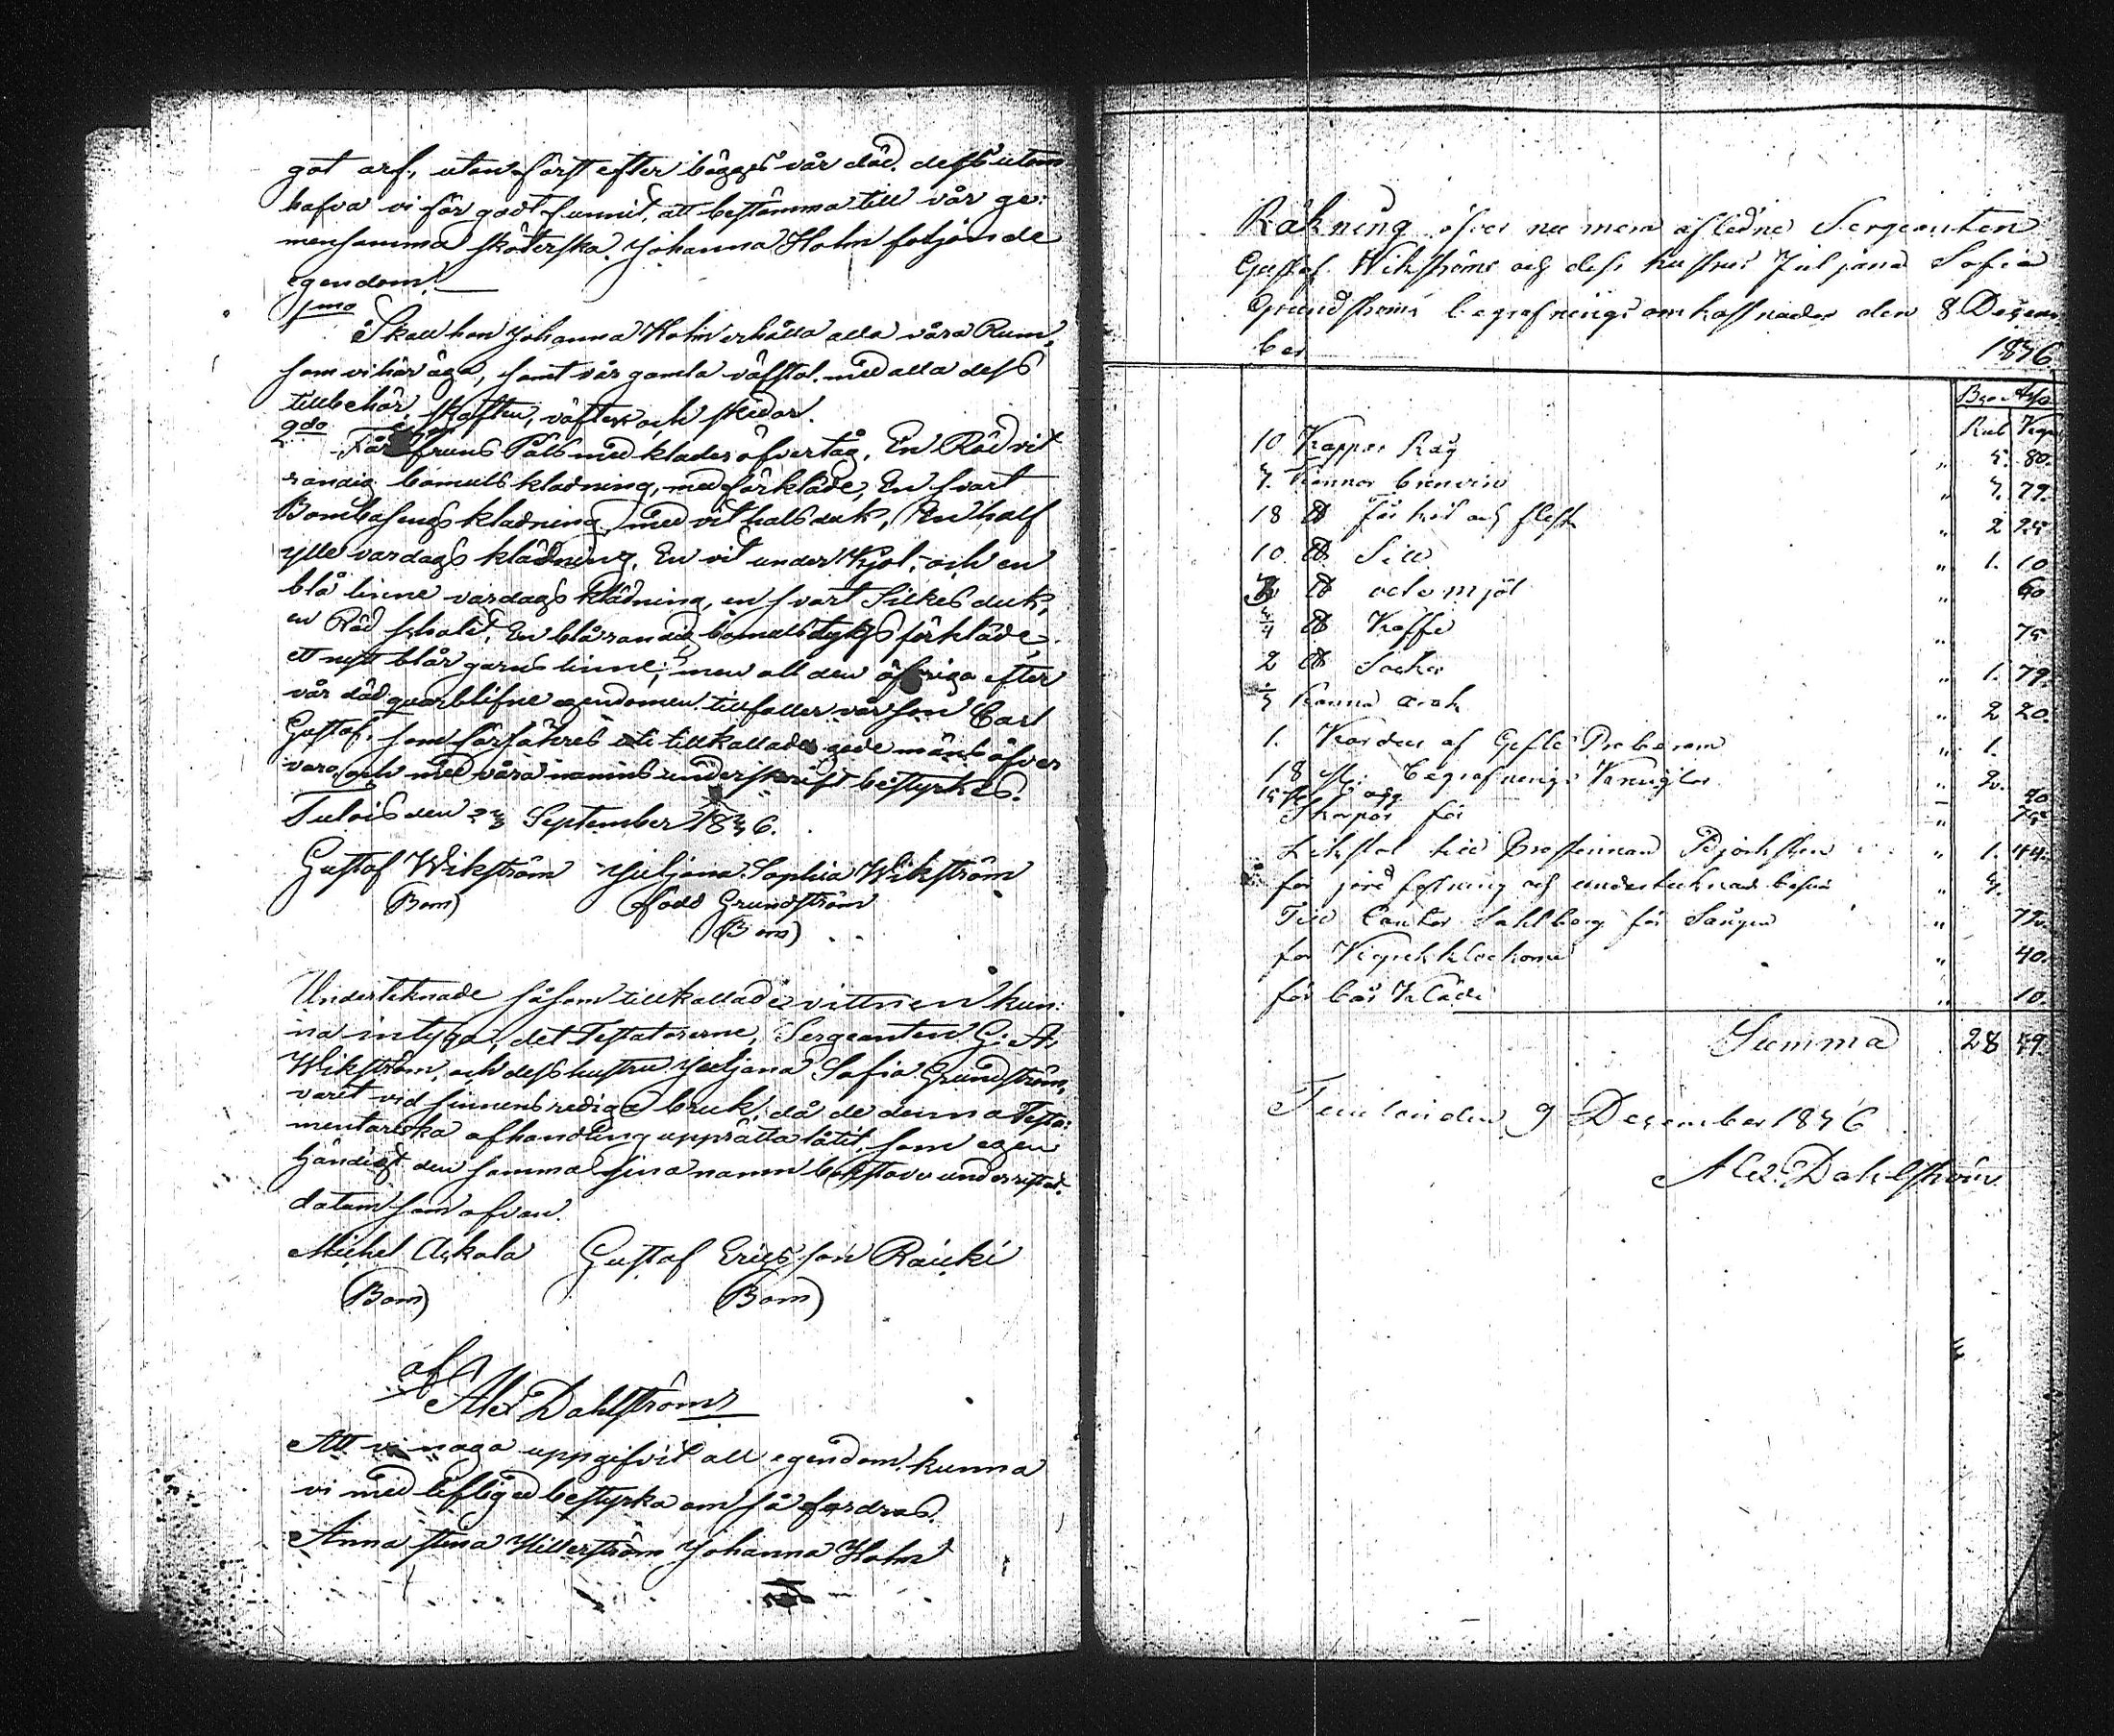 got arf, utan först efter bägges vår död. dessutom
hafva vi för godt funnit, att bestämma till vår ge-
mensamma sköterska Johanna Holm följande
egendom.
1mo
Skall hon Johanna Holm erhålla alla våra Rum,
som vi här äga, samt vår gamla väfstol med alla dess
tillbehör, skaften, väfter och skedar.
2do
Får fruns Päls med klädes öfvertåg, En Röd vit
randig bomulls kladning, med förkläde, En svart
Bombasengs kladning med vit halsduk, En half
ylle vardags klädning, En vit under Kjol, och en
blå linne vardags klädning, en svart Silkes duk,
en Röd schalet, En blårandig bomulstygs förkläde,
ett nytt blår garns linne, men all den öfriga efter
vår död quarblifne egendomen tillfaller vår son Carl
Gustaf, som försäkres uti tillkallade gode mäns öfver
varo, och med våra namns underskrift bestyrkes.
Tulois den 23 September 1846.
Gustaf Wikström Juljana Sophia Wikström
(Bom) född Grundström
(Bom)
Underteknade såsom tillkallade vittnen kun-
na intyga, det Testatorerne, Sergeanten G: A:
Wikström, och dess hustru Juljana Sofia Grundström,
varit vid sinnens rediga bruk, då de denna Testa-
mentariska afhandling upprätta låtit, som egen
händigt den samma sina namn bokstäver underristat.
datum som ofvan.
Michel Askola Gustaf Ericsson Rauki
(Bom) (Bom)
af
Alex Dahlström
Att vi noga uppgifvit all egendom, kunna
vi med liflig ed bestyrka om så fordras.
Anna Stina Hillerström Johanna Holm
Räkning öfver nu mera afledne Sergeanten
Gustaf Wikströms och dess hustrus Juljana Sofia
Grundströms begrafnings omkostnader den 8 Decem
ber 1846.
Rub Kop
10 Kappar Råg " 5. 80.
7. Kannor brenvin " 7. 79.
18 ℔ får kött och flesk " 2 25.
10. ℔ Sill " 1. 10
℔ mjöl " 60
3/4 ℔ Kaffe " 75
2 ℔ Socker " 1. 79.
Kanna arak " 2 20.
1. Kardus af Gefle " 1.
18 st. begrafnings Kringlor " 2.
15 st ägg 40
Skorpor för " 75
Likstol till Prostinnan Björksten " 1. 44.
för jord fästning och underteknad besvär "
Till Cantor Sahlberg för Sången "
för Kyrkklockorna " 40.
för bår Kläde " 10.
Summa 28 49.
den 9 December 1846
Alex. Dahlström